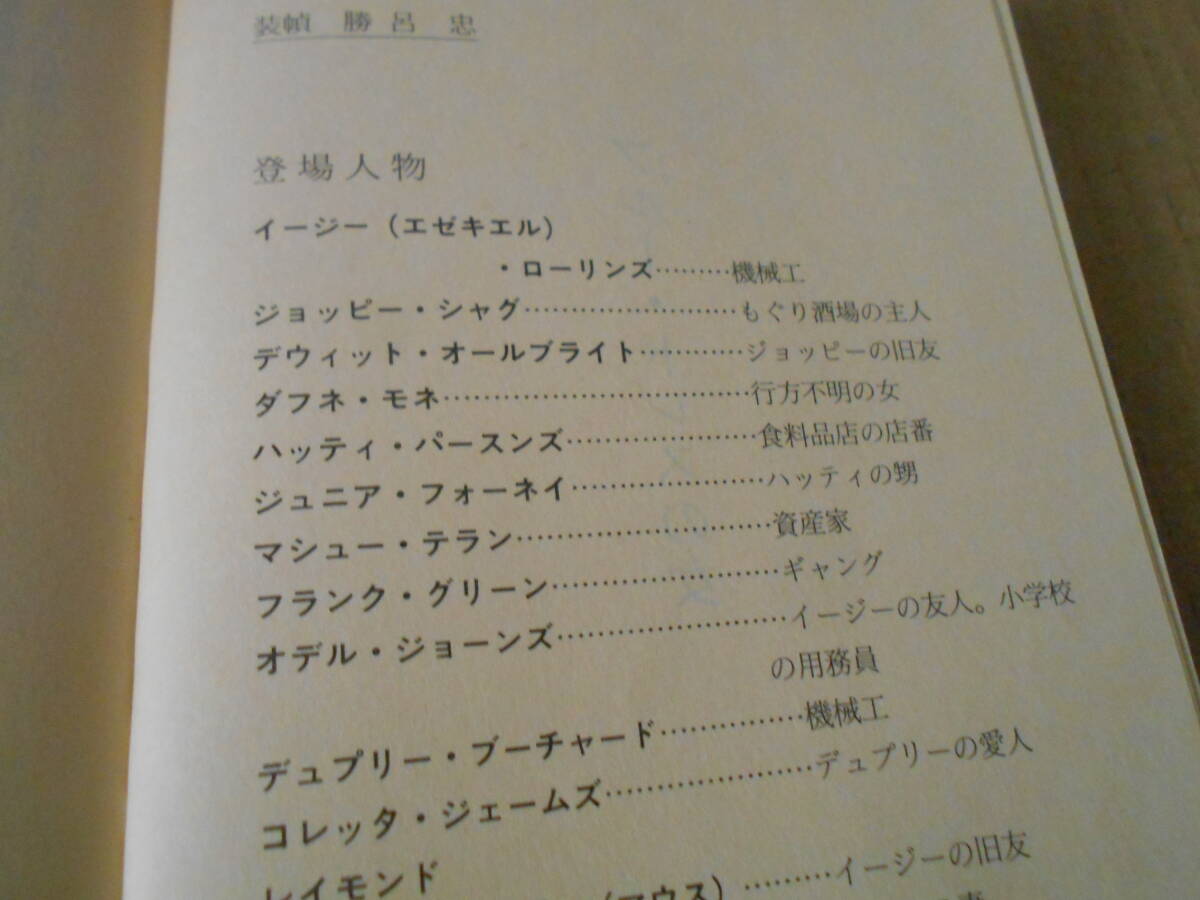 装幀 勝呂 忠
登場人物
イージー（エゼキエル）
・ローリンズ………機械工
ジョッピー・シャグ……………………もぐり酒場の主人
デウィット・オールブライト…………ジョッピーの旧友
ダフネ・モネ……………………………行方不明の女
ハッティ・パースンズ…………………食料品店の店番
ジュニア・フォーネイ…………………ハッティの甥
マシュー・テラン………………………資産家
フランク・グリーン……………………ギャング
オデル・ジョーンズ……………………イージーの友人。小学校
の用務員
デュプリー・ブーチャード……………機械工
コレッタ・ジェームズ…………………デュプリーの愛人
レイモンド
（マウス）………イージーの旧友